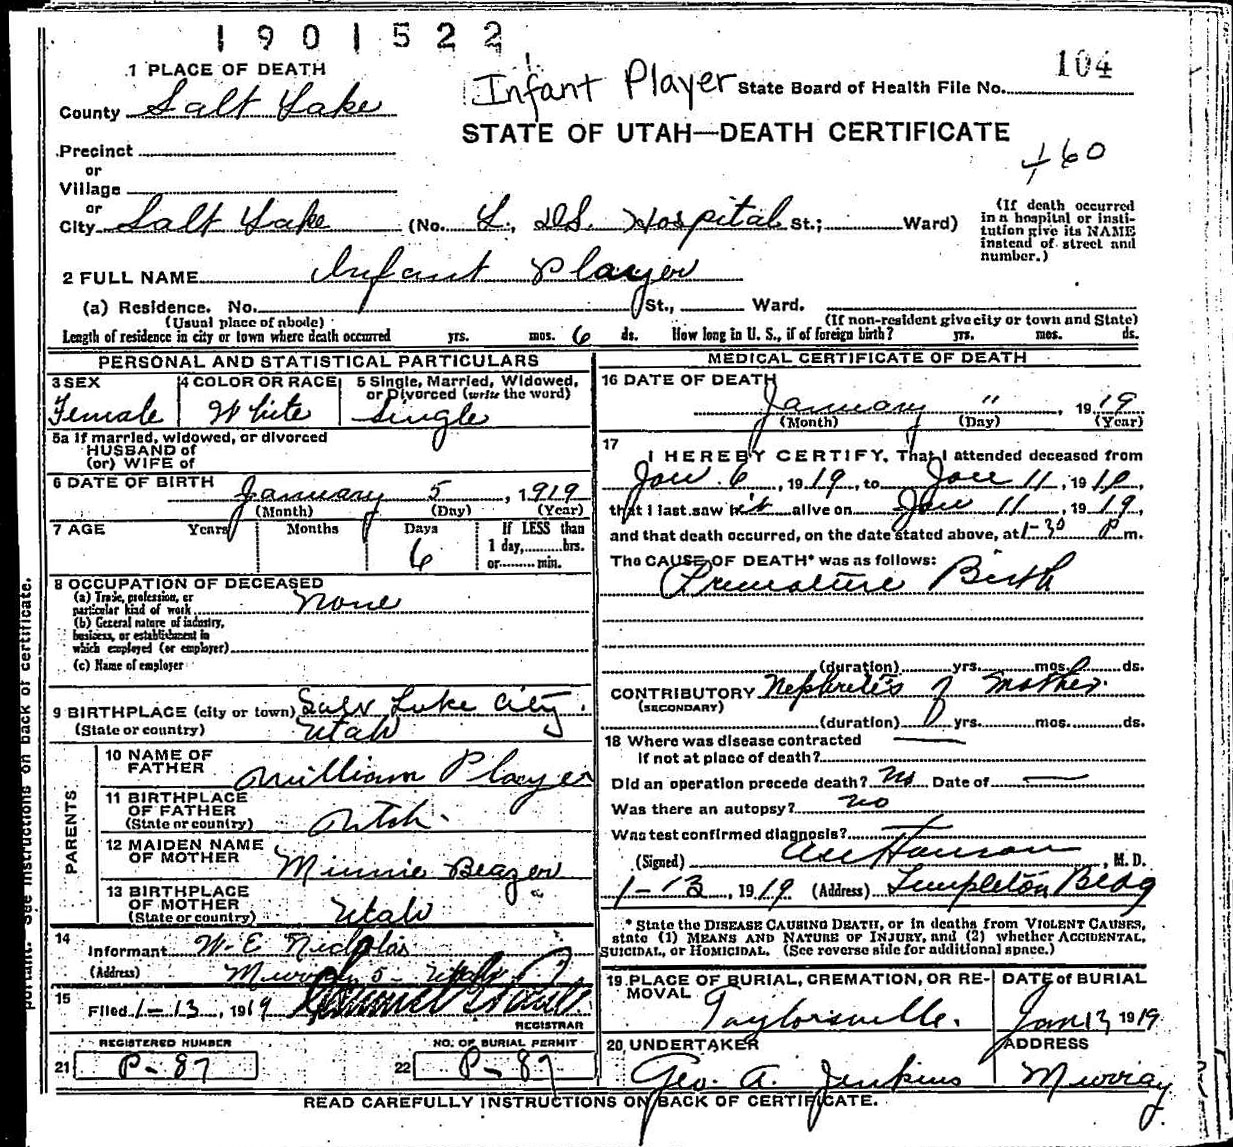 1901522
Infant Player State Board of Health File No. 104
STATE OF UTAH—DEATH CERTIFICATE
+60
1 PLACE OF DEATH
County Salt Lake
Precinct
or
Village
or
City Salt Lake (No. L. DS. Hospital St.; Ward)
(If death occurred
in a hospital or insti-
tution give its NAME
instead of street and
number.)
2 FULL NAME Infant Player
(a) Residence. No. St., Ward.
(Usual place of abode) (If non-resident give city or town and State)
Length of residence in city or town where death occurred yrs. mos. 6 ds. How long in U. S., if of foreign birth? yrs. mos. ds.
PERSONAL AND STATISTICAL PARTICULARS
3 SEX 4 COLOR OR RACE 5 Single, Married, Widowed,
or Divorced (write the word)
Female White Single
5a If married, widowed, or divorced
HUSBAND of
(or) WIFE of
6 DATE OF BIRTH January 5, 1919
(Month) (Day) (Year)
7 AGE Years Months Days If LESS than
6 1 day,........hrs.
or........ min.
8 OCCUPATION OF DECEASED
(a) Trade, profession, or
particular kind of work none
(b) General nature of industry,
business, or establishment in
which employed (or employer)
(c) Name of employer
9 BIRTHPLACE (city or town) Salt Lake City.
(State or country) Utah
PARENTS
10 NAME OF
FATHER William Player
11 BIRTHPLACE
OF FATHER
(State or country) Utah.
12 MAIDEN NAME
OF MOTHER Minnie Beazer
13 BIRTHPLACE
OF MOTHER
(State or country) Utah
14
Informant W. E. Nicholas
(Address) Murray 5- Utah
15
Filed 1-13, 1919
REGISTRAR
REGISTERED NUMBER NO. OF BURIAL PERMIT
21 P-87 22 P-87
MEDICAL CERTIFICATE OF DEATH
16 DATE OF DEATH
January 11, 1919
(Month) (Day) (Year)
17
I HEREBY CERTIFY, That I attended deceased from
Jan. 6, 1919, to Jan 11, 1919,
that I last saw h alive on Jan 11, 1919,
and that death occurred, on the date stated above, at 1-30 P m.
The CAUSE OF DEATH* was as follows:
Premature Birth
(duration) yrs. mos. ds.
CONTRIBUTORY Nephritis of Mother.
(SECONDARY)
(duration) yrs. mos. ds.
18 Where was disease contracted
If not at place of death?
Did an operation precede death? No Date of
Was there an autopsy? no
Was test confirmed diagnosis?
(Signed) , M. D.
1-13, 1919 (Address) Templeton Bldg
* State the DISEASE CAUSING DEATH, or in deaths from VIOLENT CAUSES,
state (1) MEANS AND NATURE OF INJURY, and (2) whether ACCIDENTAL,
SUICIDAL, or HOMICIDAL. (See reverse side for additional space.)
19 PLACE OF BURIAL, CREMATION, OR RE-
MOVAL Taylorsville.
DATE OF BURIAL
Jan 13 1919
20 UNDERTAKER ADDRESS
Geo. A. Jenkins Murray
READ CAREFULLY INSTRUCTIONS ON BACK OF CERTIFICATE.
portant. See instructions on back of certificate.